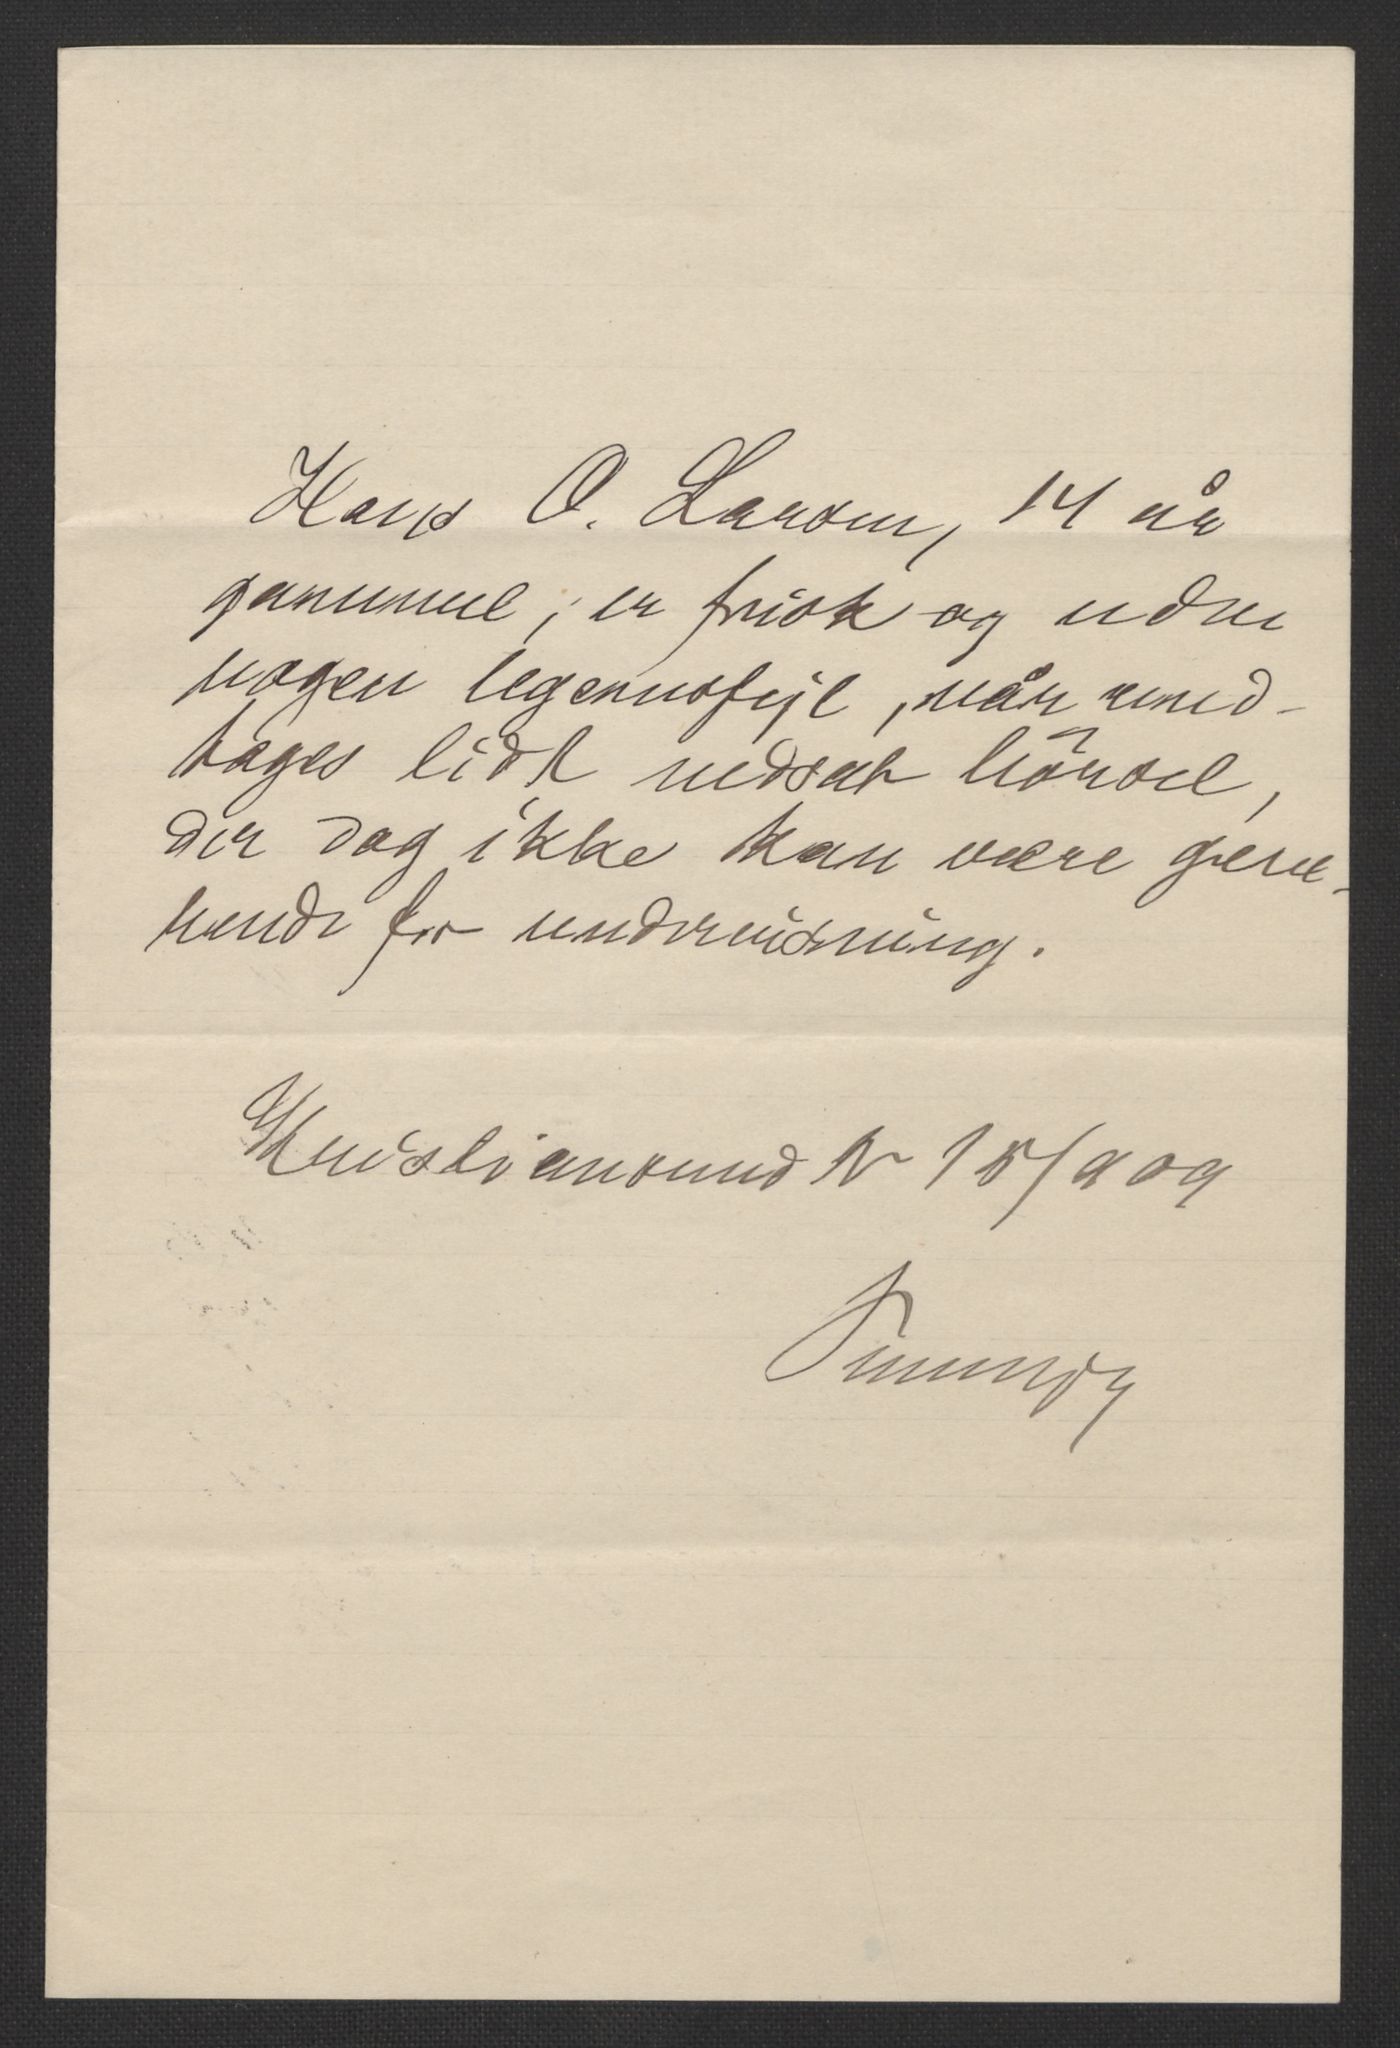 Hans O. Larsen, 14 år
gammel, er frisk og uden
nogen legemsfejl, når und-
tages lidt nedsat hörsel,
der dog ikke kan være gene-
rende for undervisning.
Kristiansund N 15/9 09